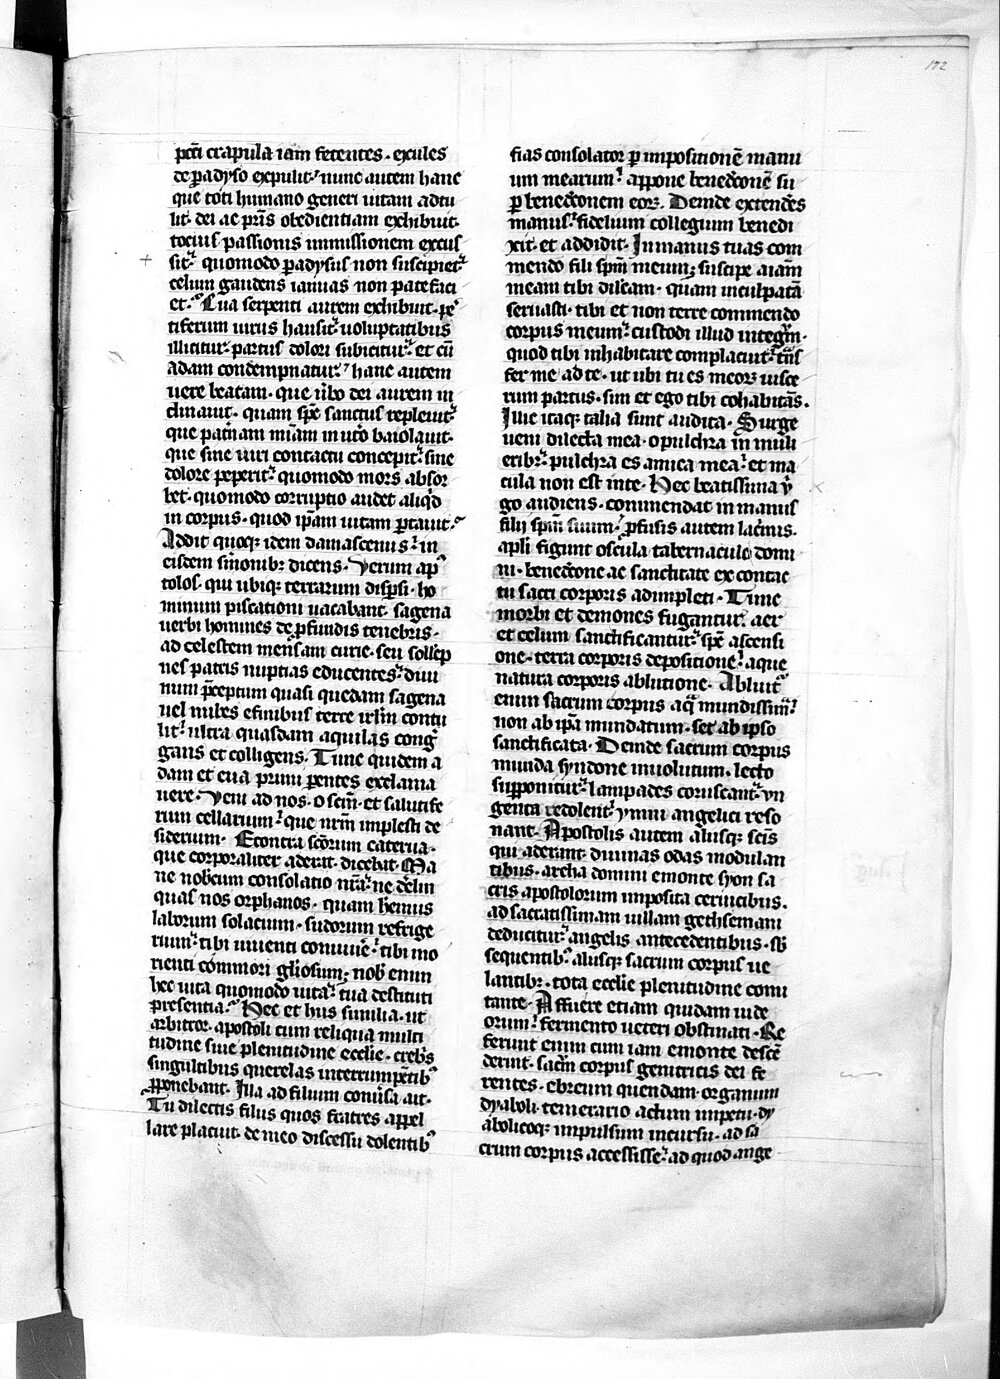 172
pcc̄i crapula iam fetentes · exules
de ꝑadyso expulit · nunc autem hanc
que toti humano generi uitam adtu
lit · dei ac pr̄is obedientiam exhibuit ·
tocius passionis inmissionem excus
sit · quomodo ꝑadysus non suscipiet
celum gaudens ianuas non patefaci
et · Eua serpenti aurem exhibuit · pe
tiferum uirus hausit · uoluptatibus
illicitur · partus dolori subicitur · et cū
adam condempnatur · hanc autem
uere beatam · que u̇bo dei aurem in
clinauit · quam sp̄c sanctus repleuit
que pat̄nam miām in ut̄o baiolauit ·
que sine uiri contactu concepit · sine
dolore peperit · quomodo mors absor
bet · quomodo corruptio audet aliqͥd
in corpus · quod ip̄am uitam ꝑtauit ·
Addit quoqꝫ idem damascenus · in
eisdem s̄monibꝫ dicens · Verum apꝰ
tolos · qui ubiqꝫ terrarum disꝑsi · ho
minum piscationi uacabant · sagena
uerbi homines de ꝓfundis tenebris ·
ad celestem mensam curie · seu sollēp
nes patris nuptias educentes · diui
num p̄ceptum quasi quedam sagena
uel nubes efinibus terre ir̄lm contu
lit · ultra quasdam aquilas congͣ
gans et colligens · Tunc quidem a
dam et eua primi ꝑentes exclama
uere · Veni ad nos · o sc̄m · et salutife
rum cellarium · que nr̄m implesti de
siderium · Econtra sc̄orum caterua ·
que corporaliter aderat · dicebat · Ma
ne nobcum consolatio nr̄a · ne derelin
quas nos orphanos · quam habemus
laborum solacium · sudorum refrige
rium · tibi uiuenti conuiuē · tibi mo
rienti commori gl̄iosum · nob̄ enim
hec uita quomodo uita · tua destituti
presentia · Hec et hiis similia · ut
arbitror · apostoli cum reliqua multi
tudine siue plenitudine ecclie · creb̄s
singultibus querelas interrumpentibꝰ
ꝓponebant · Illa ad filium conu̇sa ait ·
Tu dilectis filiis quos fratres appel
lare placuit · de meo discessu dolentibꝰ
fias consolator ꝑ impositionē manu
um mearum · appone benedc̄onē su
ꝑ benedc̄onem eorꝫ · Deinde extendēs
manus · fidelium collegium benedi
xit · et addidit · In manus tuas com
mendo fili sp̄m meum · suscipe aīam
meam tibi dilcam · quam inculpatā
seruasti · tibi et non terre commendo
corpus meum · custodi illud integͬm ·
quod tibi inhabitare complacuit · tͣns
fer me ad te · ut ubi tu es meorꝫ uisce
rum partus · sim et ego tibi cohabitās ·
Illic itaqꝫ talia sunt audita · Surge
ueni dilecta mea · o pulchra in muli
eribꝫ · pulchra es amica mea · et ma
cula non est in te · Hec beatissima v̇
go audiens · commendat in manus
filij sp̄m suum · ꝓfusis autem lacͥmis ·
apl̄i figunt oscula tabernaculo domi
ni · benedc̄one ac sanctitate ex contac
tu sacri corporis adimpleti · Tunc
morbi et demones fugantur · aer
et celum sanctificantur · sp̄c ascensi
one · terra corporis depositione · aque
natura corporis ablutione · Abluitꝰ
enim sacrum corpus aqͣ mundissimͣ
non ab ip̄a mundatum · set ab ipso
sanctificata · Deinde sacrum corpus
munda syndone inuolutum · lecto
supponitur · lampades coruscant · vn
genta redolent · ymni angelici reso
nant · Apostolis autem aliisqꝫ sc̄is
qui aderant · diuinas odas modulan
tibus · archa domini emonte syon sa
cris apostolorum imposita ceruicibus ·
ad sacratissimam uillam gethsemani
deducitur · angelis antecedentibus · sb̄
sequentibꝰ aliisqꝫ sacrum corpus ue
lantibꝫ · tota ecclie plenitudine comi
tante · Affuere etiam quidam iude
orum · fermento ueteri obstinati · Re
ferunt enim cum iam emonte descē
derint · sacͬm corpus genitricis dei fe
rentes · ebreum quendam · organum
dyaboli · temerario actum impetu · dy
abolicoqꝫ impulsum incursu · ad sa
crum corpus accessisse · ad quod ange